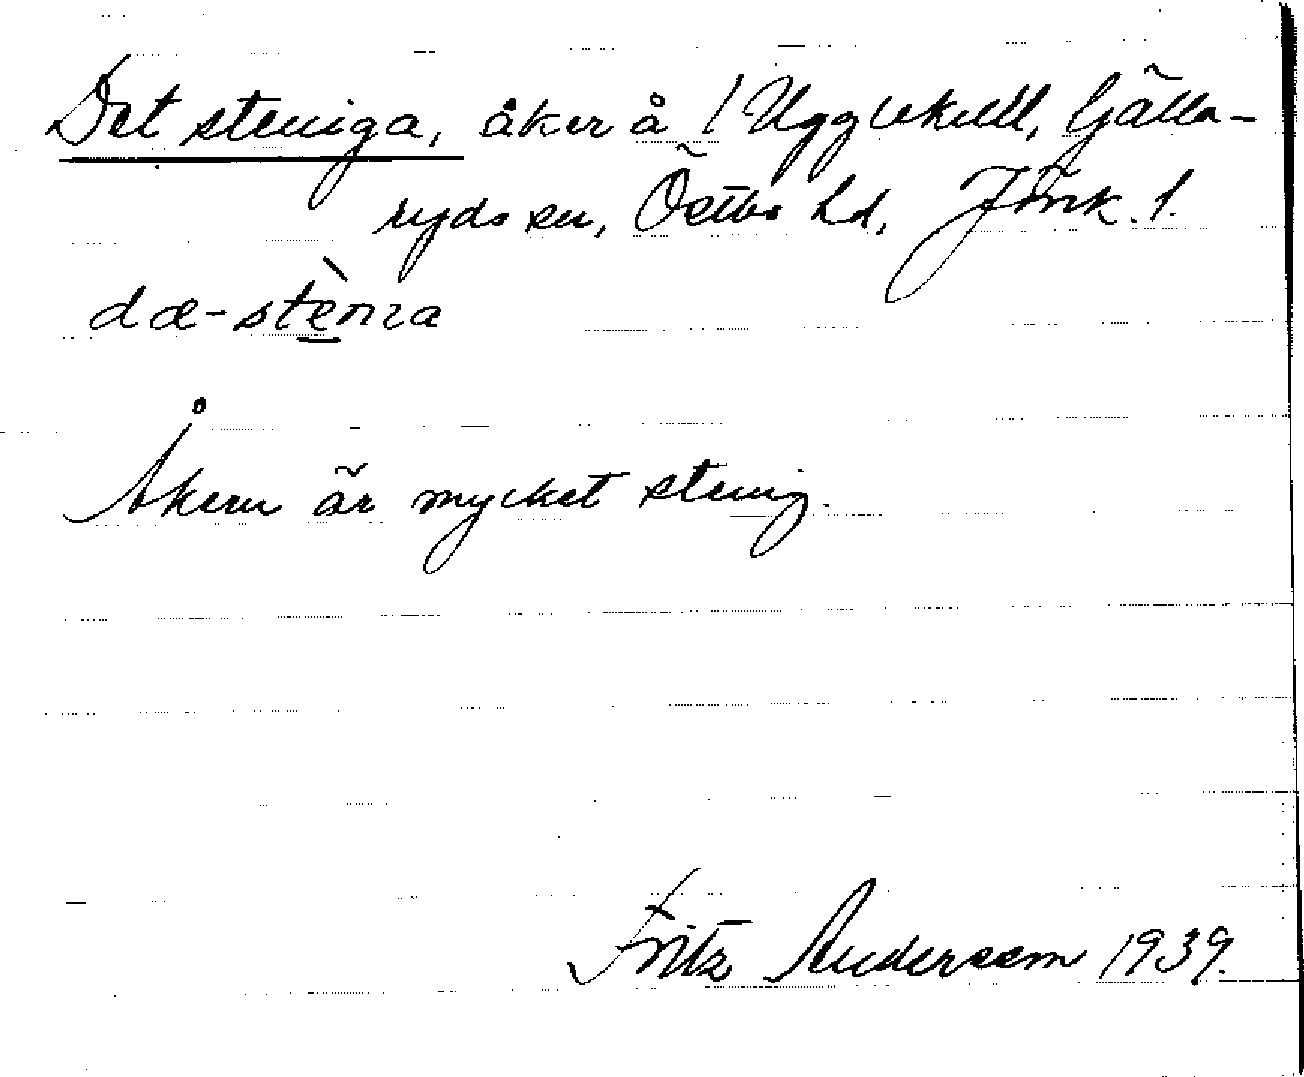 Det steniga, åker å 1 Ugglekull, Gälla-
ryds sn, Östbo hd, Jönk. l.
dæ-stèna
Åkern är mycket stenig.
Fritz Andersson 1939.